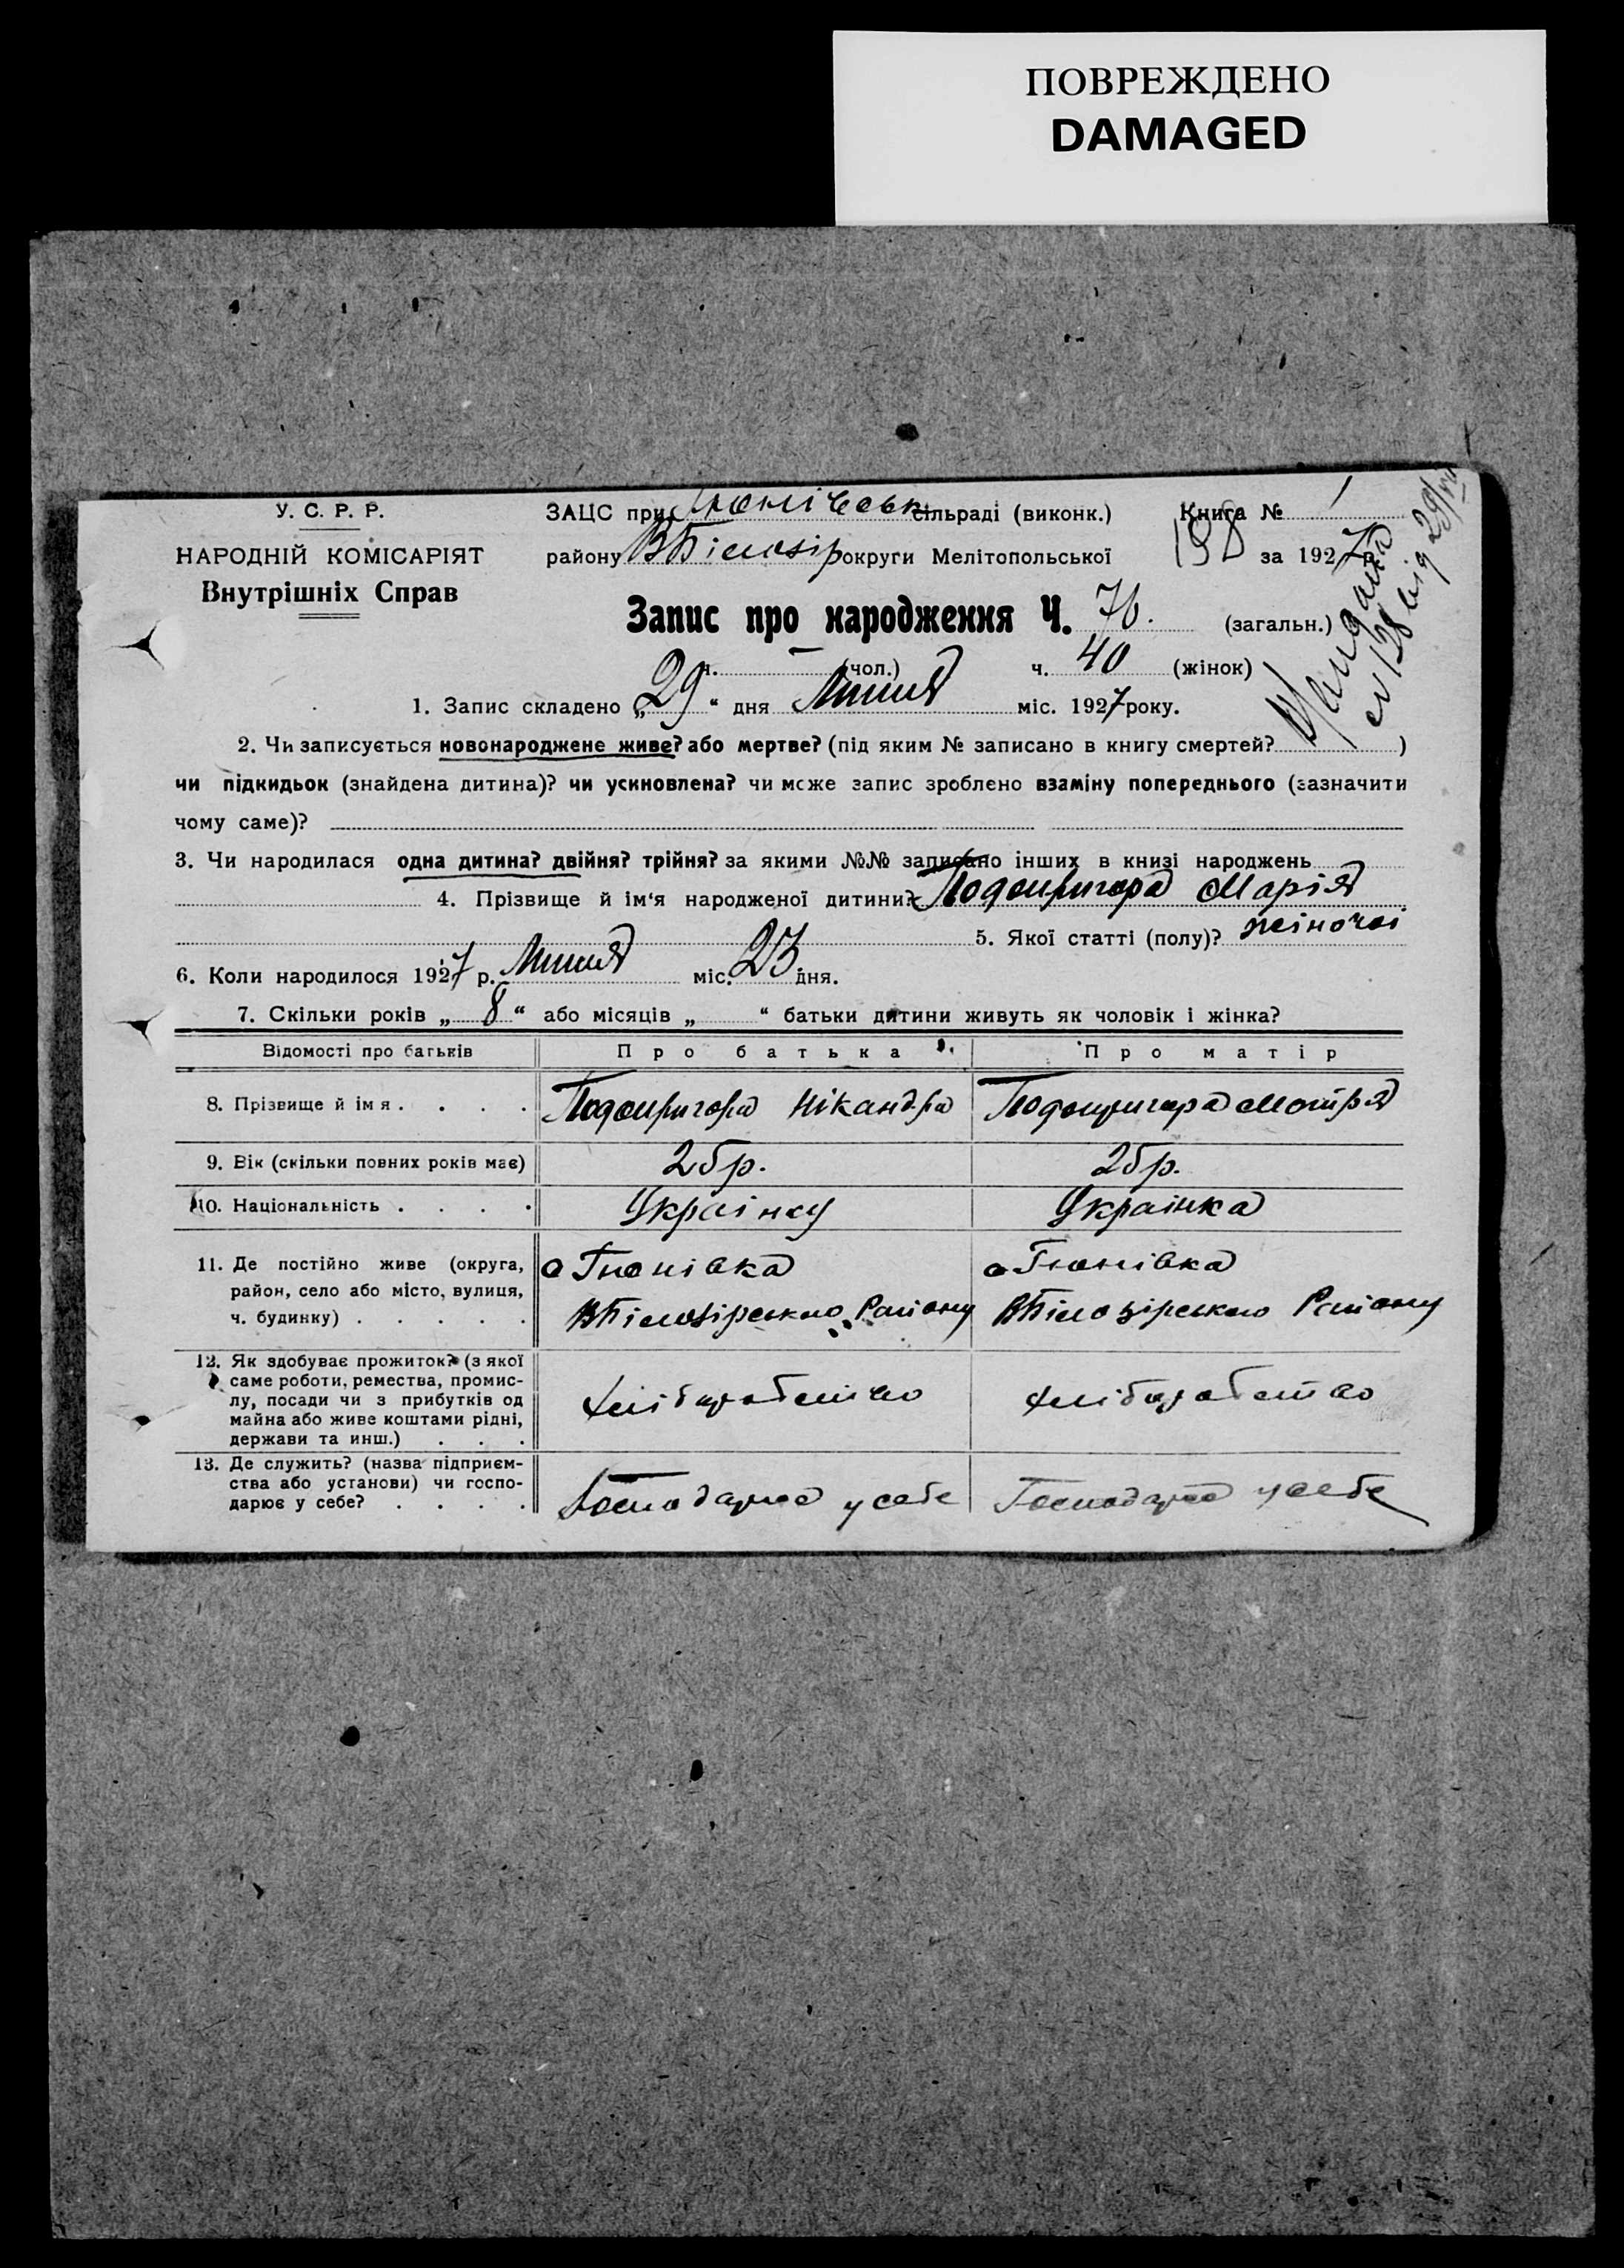 ПОВРЕЖДЕНО
DAMAGED
У. С. Р. Р.
НАРОДНІЙ КОМІСАРІЯТ
Внутрішніх Справ
ЗАЦС при Гюнівськ сільраді (виконк.) Книга № 1
району ВБілозір округи Мелітопольської 198 за 1927 р.
Запис про народження Ч. 76. (загальн.)
ч. — (чол.) ч. 40 (жінок)
1. Запис складено „29“ дня Липня міс. 1927 року.
від 29/VII
2. Чи записується новонароджене живе? або мертве? (під яким № записано в книгу смертей? )
чи підкидьок (знайдена дитина)? чи усиновлена? чи може запис зроблено взаміну попереднього (зазначити
чому саме)?
3. Чи народилася одна дитина? двійня? трійня? за якими №№ записано інших в книзі народжень
4. Прізвище й ім‘я народженої дитини? Подопригора Марія
5. Якої статті (полу)? жіночоі
6. Коли народилося 1927 р. Липня міс. 23 дня.
7. Скільки років „8“ або місяців „ “ батьки дитини живуть як чоловік і жінка?
Відомості про батьків Про батька Про матір
8. Прізвище й імя . . . . Подопригора Нікандра Подопригора Мотря
9. Вік (скільки повних років має) 25р. 25р.
10. Національність . . . . Украінец Украінка
11. Де постійно живе (округа, с Гюнівка с Гюнівка
район, село або місто, вулиця,
ч. будинку) . . . . . ВБілозірського Району ВБілозірського Району
12. Як здобуває прожиток? (з якої
саме роботи, ремества, промис-
лу, посади чи з прибутків од хліборобство хліборобство
майна або живе коштами рідні,
держави та инш.) . . .
13. Де служить? (назва підприєм-
ства або установи) чи госпо-
дарює у себе? . . . . Господарює у себе Господарює у себе